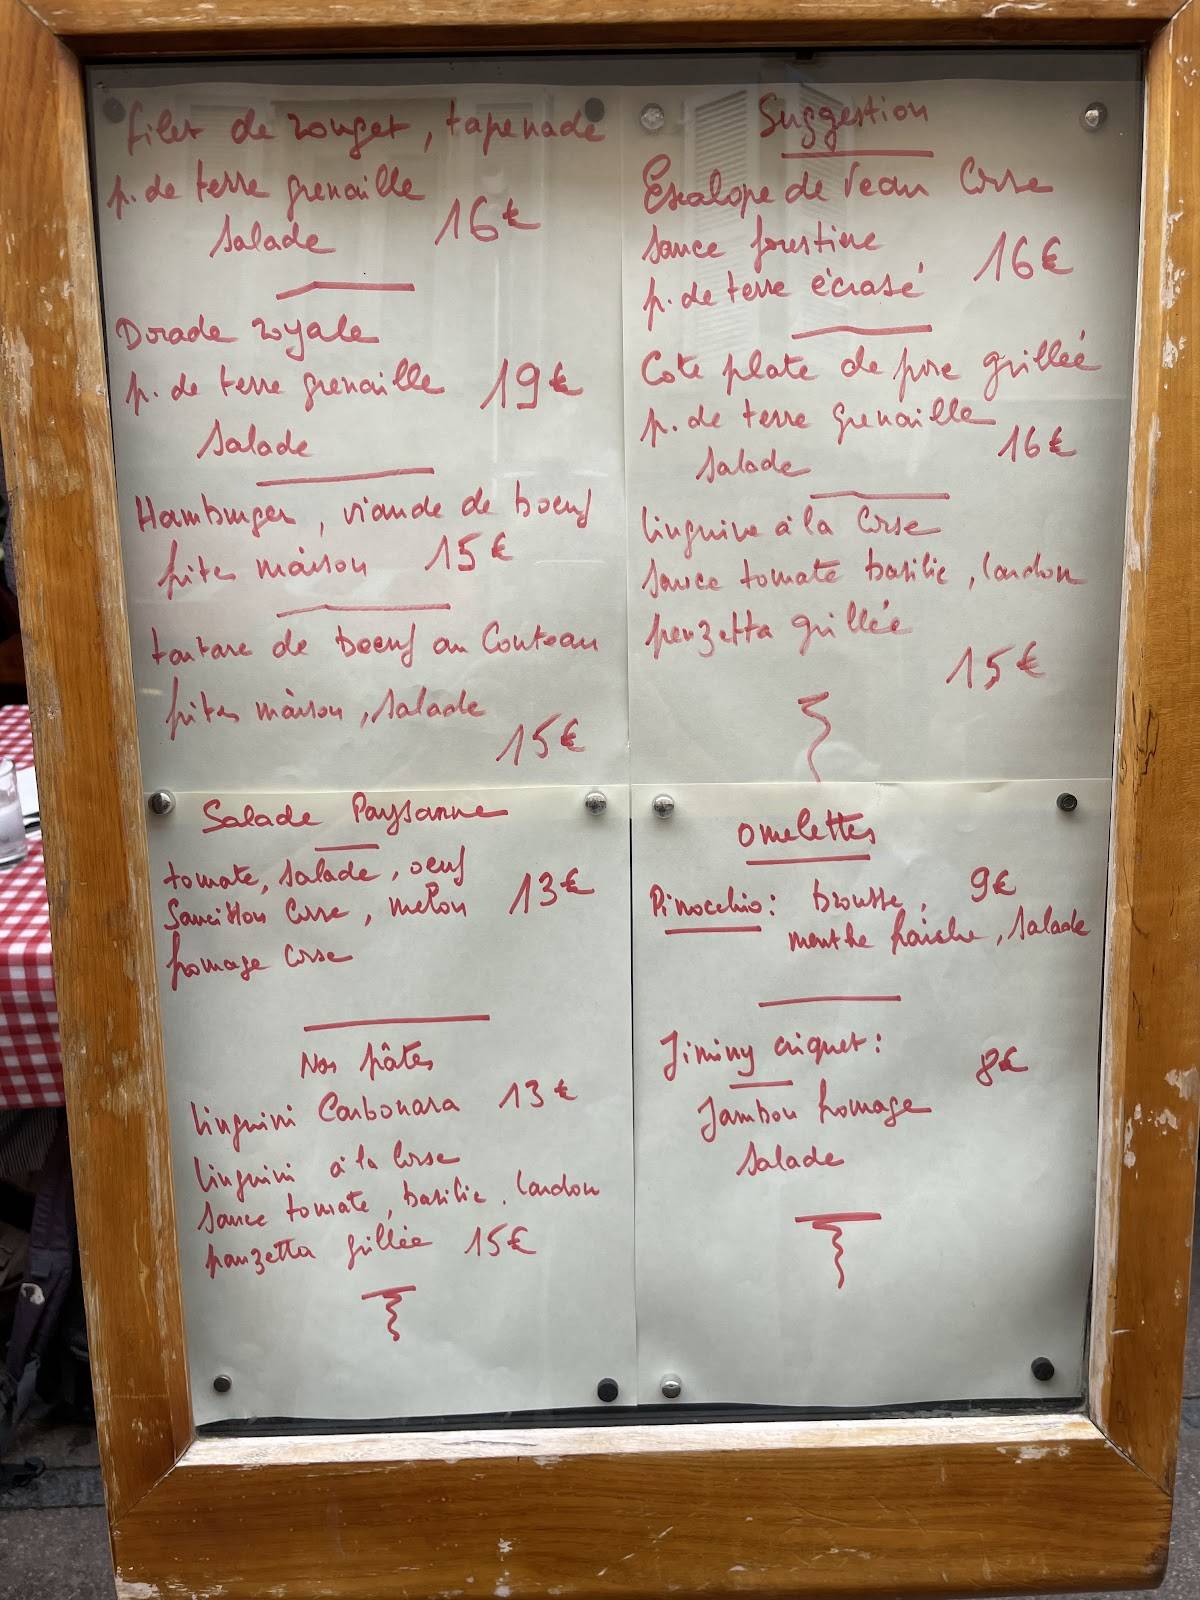 filet de rouget, tapenade
p. de terre grenaille
salade 16€
Dorade royale
p. de terre grenaille 19€
salade
Hamburger, viande de boeuf
frites màison 15€
tartare de boeuf au Couteau
frites màison, salade
15€
Suggestion
Escalope de veau Corse
sauce forestière
16€
p. de terre écrasé
Cote plate de porc grillée
p. de terre grenaille
16€
salade
linguine à la Corse
sauce tomate basilic, lardon
penzetta grillée
15€
Salade Paysanne
tomate, salade, oeuf
Saucisson Corse, melon 13€
fromage corse
Nos pâtes
linguini Carbonara 13€
linguini à la Corse
sauce tomate, basilic, lardon
panzetta grillée 15€
omelettes
Pinocchio: brousse, 9€
menthe fraîche, salade
Jiminy criquet:
8€
Jambon fromage
salade